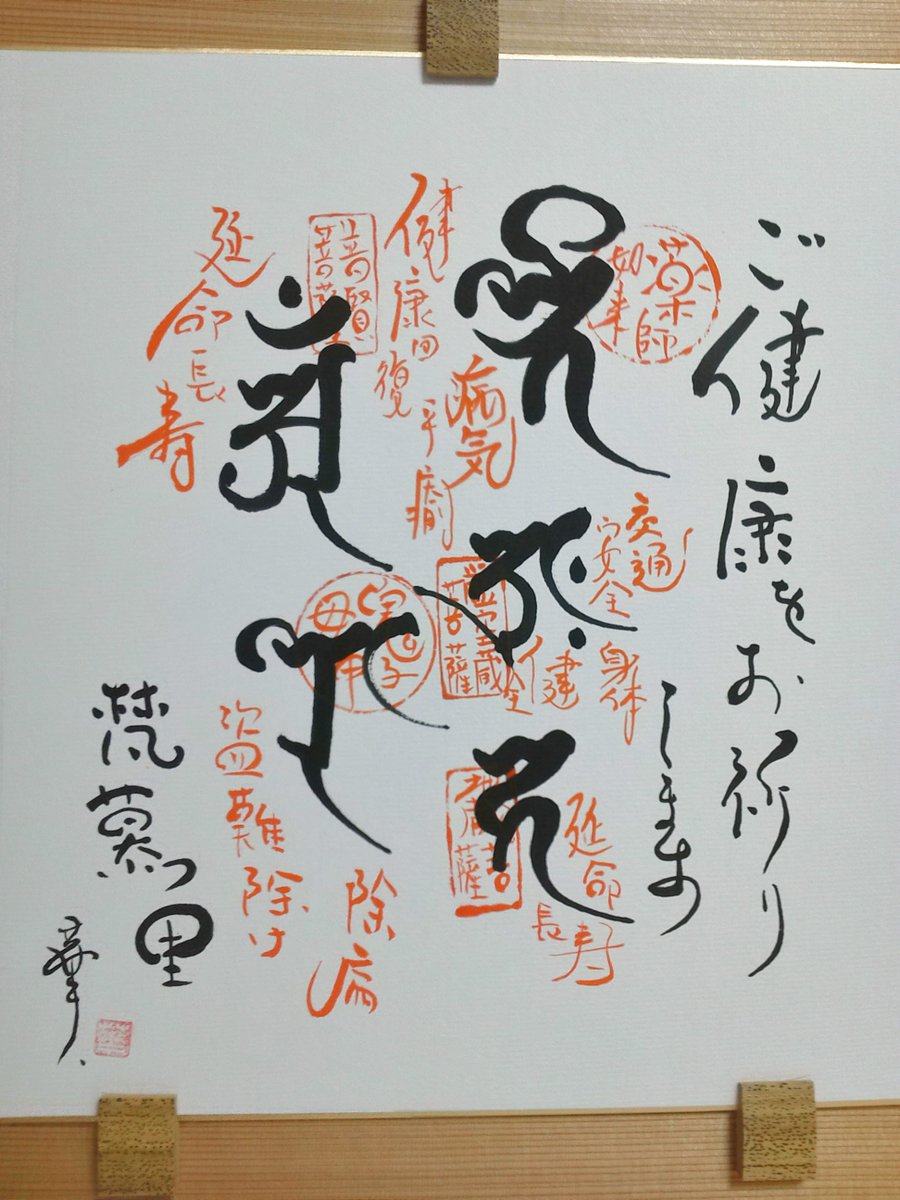 ご健康をお祈り
します
薬師
如来
交通
安全
身体
健全
延命
長寿
病気
平癒
健康回復
虚空蔵
菩薩
普賢
菩薩
延命長寿
鬼子
母神
除病
盗難除け
梵慕里
華